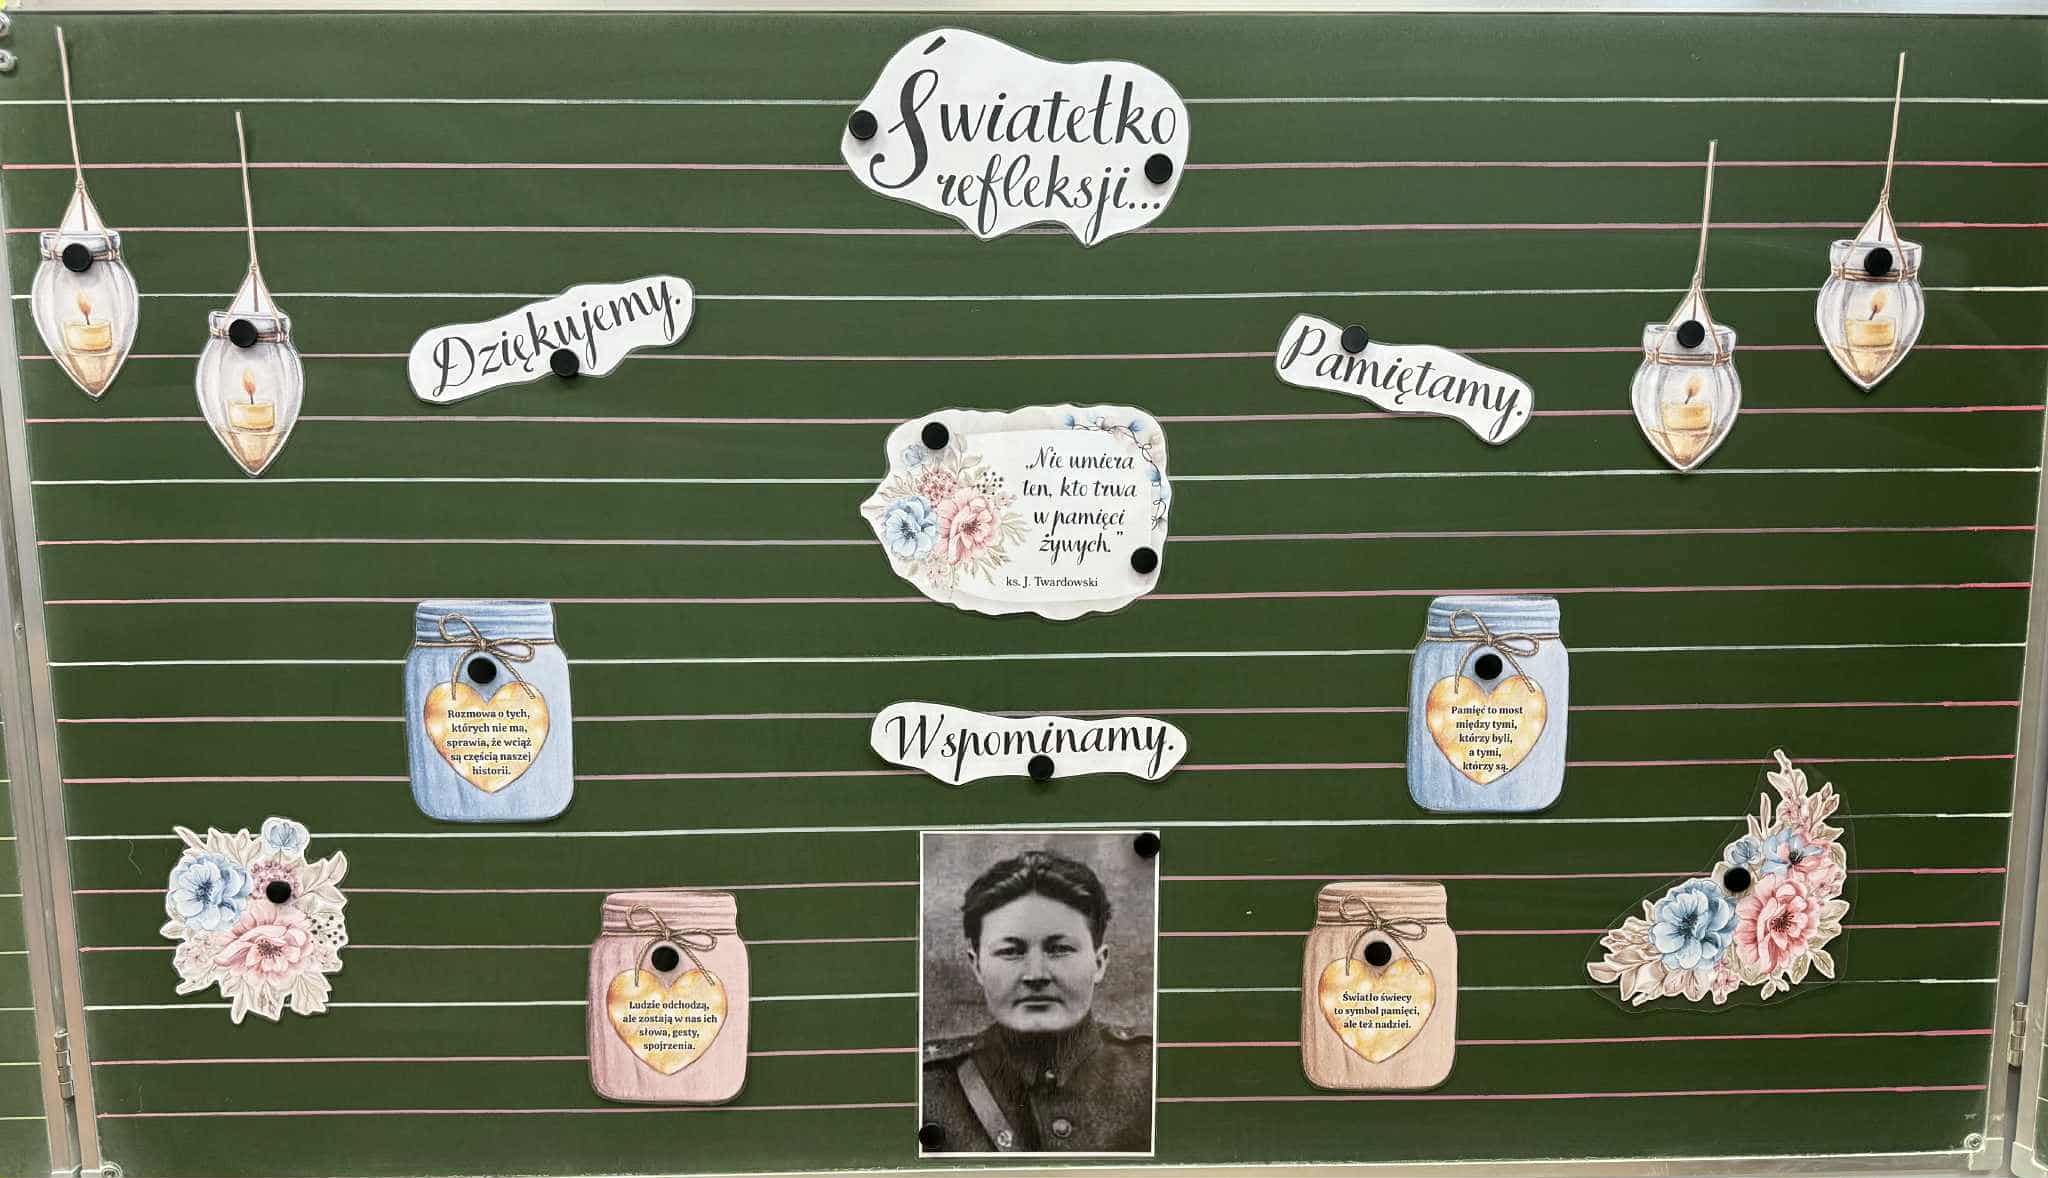 Światełko
refleksji...
Dziękujemy.
Pamiętamy.
„Nie umiera
ten, kto trwa
w pamięci
żywych.”
ks. J. Twardowski
Rozmowa o tych,
których nie ma,
sprawia, że wciąż
są częścią naszej
historii.
Wspominamy.
Pamięć to most
między tymi,
którzy byli,
a tymi,
którzy są.
Ludzie odchodzą,
ale zostają w nas ich
słowa, gesty,
spojrzenia.
Światło świecy
to symbol pamięci,
ale też nadziei.